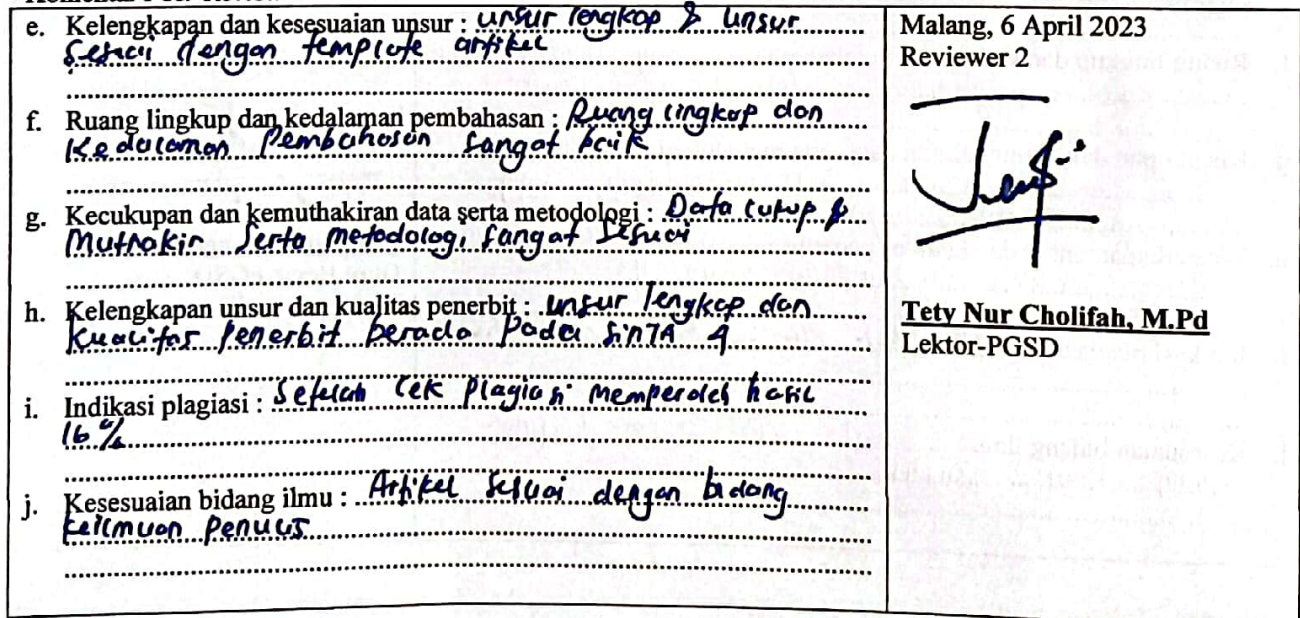 e. Kelengkapan dan kesesuaian unsur : unsur lengkap & unsur
sesuai dengan template artikel
f. Ruang lingkup dan kedalaman pembahasan : Ruang lingkup dan
Kedalaman Pembahasan sangat baik
g. Kecukupan dan kemuthakiran data serta metodologi : Data cukup &
Muthakir serta metodologi sangat sesuai
h. Kelengkapan unsur dan kualitas penerbit : unsur lengkap dan
Kualitas Penerbit berada pada SINTA 4
i. Indikasi plagiasi : Setelah cek plagiasi memperoleh hasil
16 %
j. Kesesuaian bidang ilmu : Artikel sesuai dengan bidang
keilmuan penulis
Malang, 6 April 2023
Reviewer 2
Tety Nur Cholifah, M.Pd
Lektor-PGSD